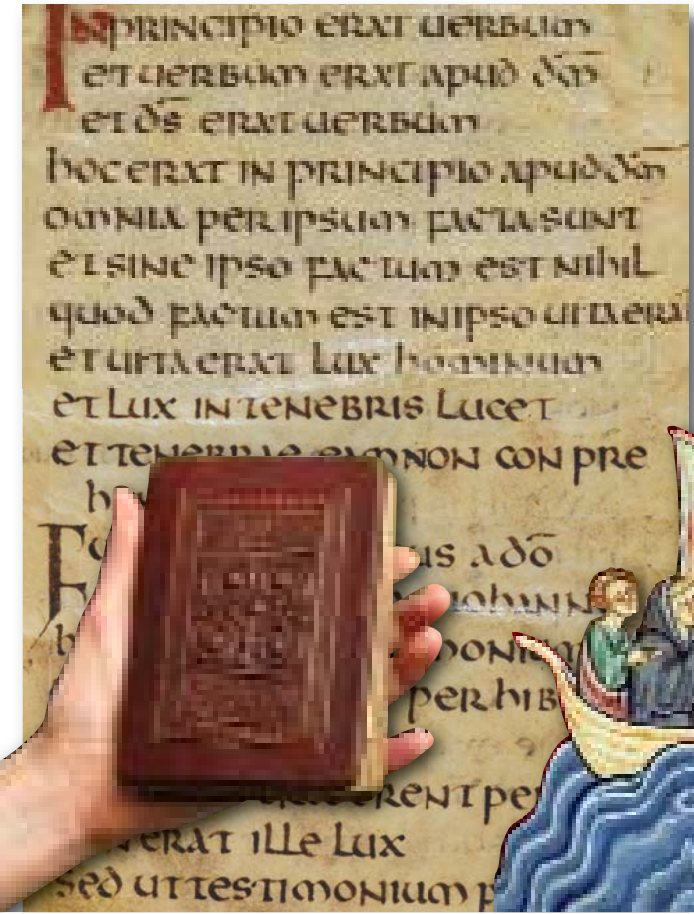 In principio erat uerbum
et uerbum erat apud dm̄
et ds̄ erat uerbum
hoc erat in principio apud dm̄
omnia per ipsum facta sunt
et sine ipso factum est nihil
quod factum est in ipso uita era
et uita erat lux hominum
et lux in tenebris lucet
et tenebrae eam non conpre
h
F us a dō
iohann
monium
perhib
erent pe
erat ille lux
sed ut testimonium p